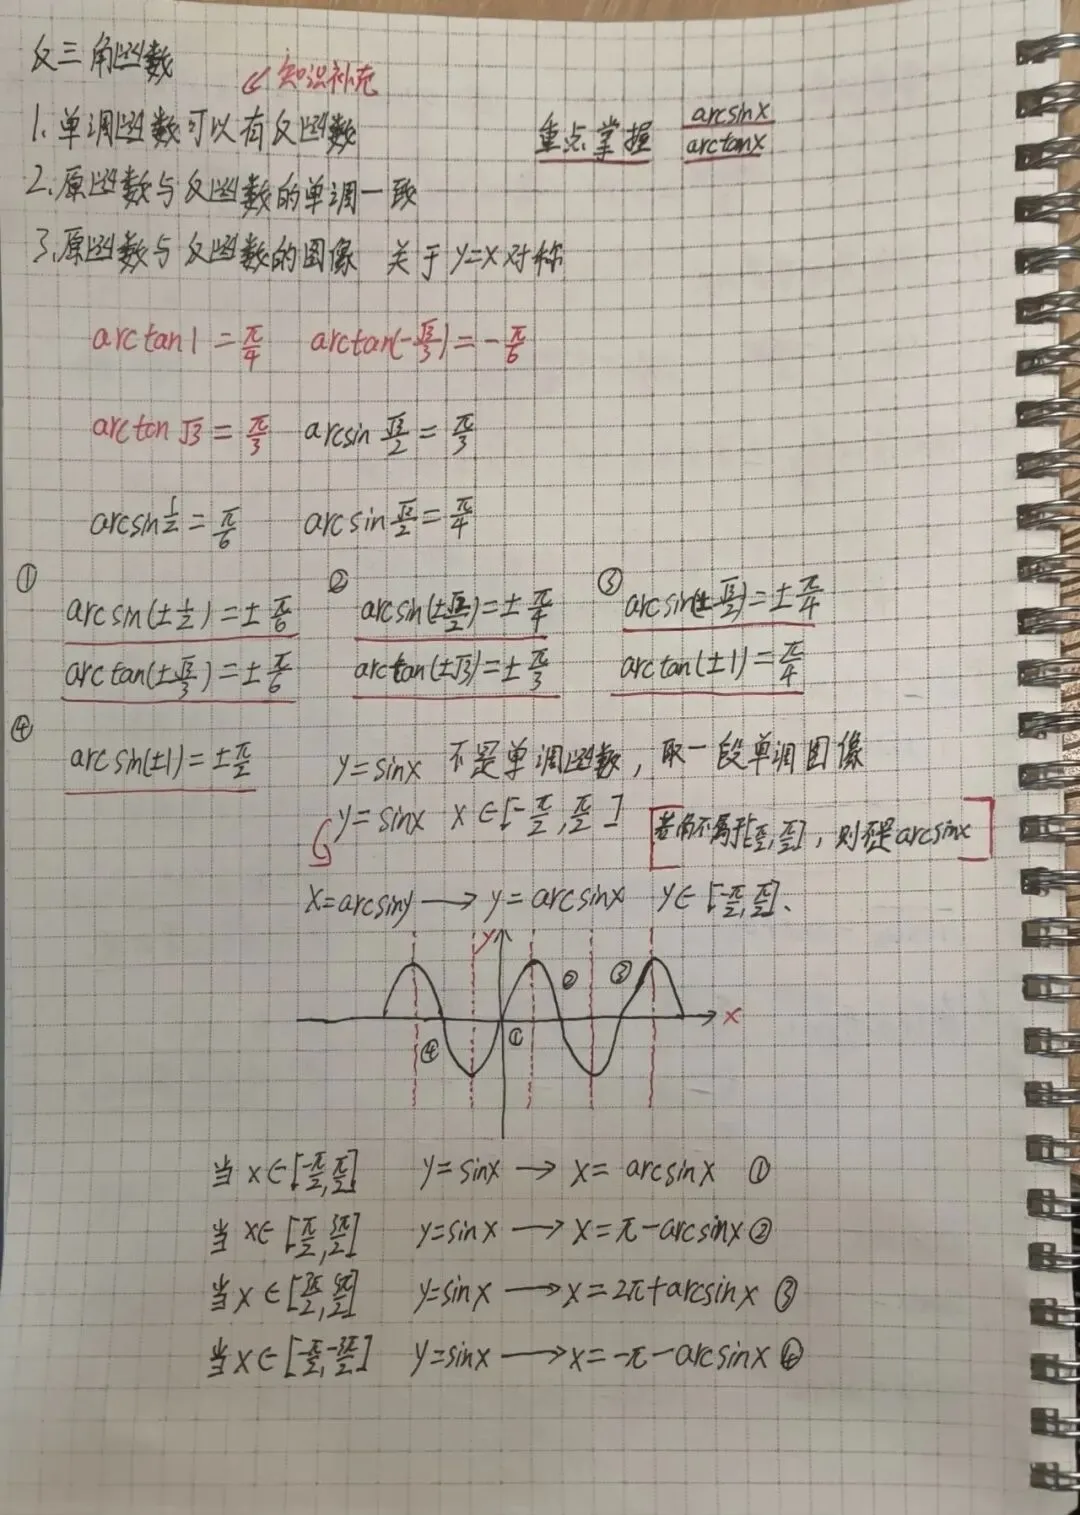 反三角函数
↙知识补充
1.单调函数可以有反函数
重点掌握 arcsinx
arctanx
2.原函数与反函数的单调一致
3.原函数与反函数的图像 关于y=x对称
arctan1=π/4 arctan(-√3/3)=-π/6
arctan√3=π/3 arcsin √3/2=π/3
arcsin 1/2=π/6 arcsin √2/2=π/4
① arcsin(±1/2)=±π/6 ② arcsin(±√2/2)=±π/4 ③ arcsin(±√2/2)=±π/4
arctan(±√3/3)=±π/6 arctan(±√3)=±π/3 arctan(±1)=π/4
④ arcsin(±1)=±π/2 y=sinx 不是单调函数,取一段单调图像
y=sinx x∈[-π/2,π/2] 若角不属于[-π/2,π/2],则不是arcsinx
x=arcsiny→y=arcsinx y∈[-π/2,π/2].
y
② ③
x
④ ①
当x∈[-π/2,π/2] y=sinx→x=arcsinx ①
当x∈[π/2,3π/2] y=sinx→x=π-arcsinx②
当x∈[3π/2,5π/2] y=sinx→x=2π+arcsinx ③
当x∈[-π/2,-3π/2] y=sinx→x=-π-arcsinx④